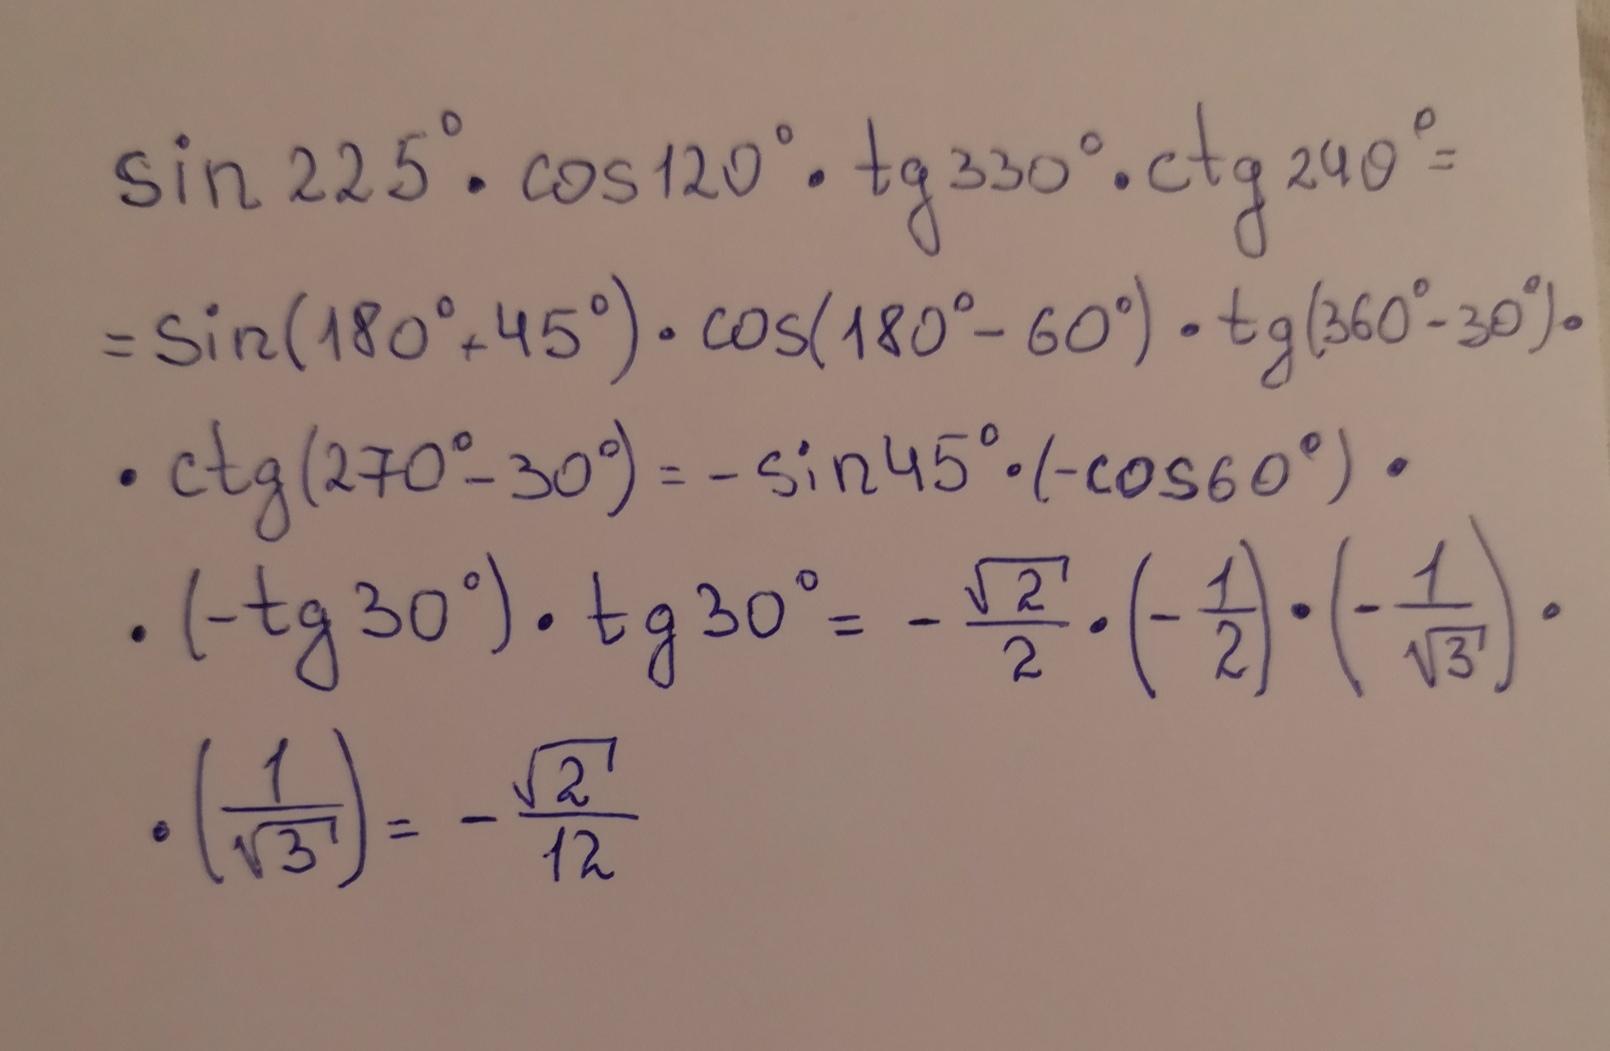 sin 225° · cos 120° · tg 330° · ctg 240° =
= sin(180° + 45°) · cos(180° - 60°) · tg(360° - 30°) ·
· ctg(270° - 30°) = - sin 45° · (-cos 60°) ·
· (-tg 30°) · tg 30° = - √2/2 · (- 1/2) · (- 1/√3) ·
· (1/√3) = - √2/12